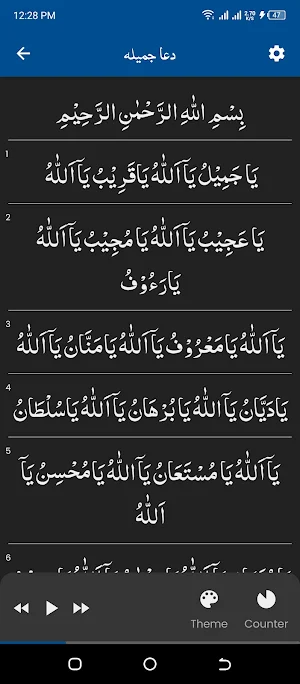 12:28 PM
2.70 K/s
47
دعا جمیلہ
بِسْمِ اللهِ الرَّحْمٰنِ الرَّحِيْمِ
1
يَا جَمِيْلُ يَآ اَللهُ يَا قَرِيْبُ يَآ اَللهُ
2
يَا عَجِيْبُ يَآ اَللهُ يَا مُجِيْبُ يَآ اَللهُ
يَارَءُوْفُ
3
يَآ اَللهُ يَا مَعْرُوْفُ يَآ اَللهُ يَا مَنَّانُ يَآ اَللهُ
4
يَادَيَّانُ يَآ اَللهُ يَا بُرْهَانُ يَآ اَللهُ يَا سُلْطَانُ
5
يَآ اَللهُ يَا مُسْتَعَانُ يَآ اَللهُ يَا مُحْسِنُ يَآ
اَللهُ
6
Theme
Counter